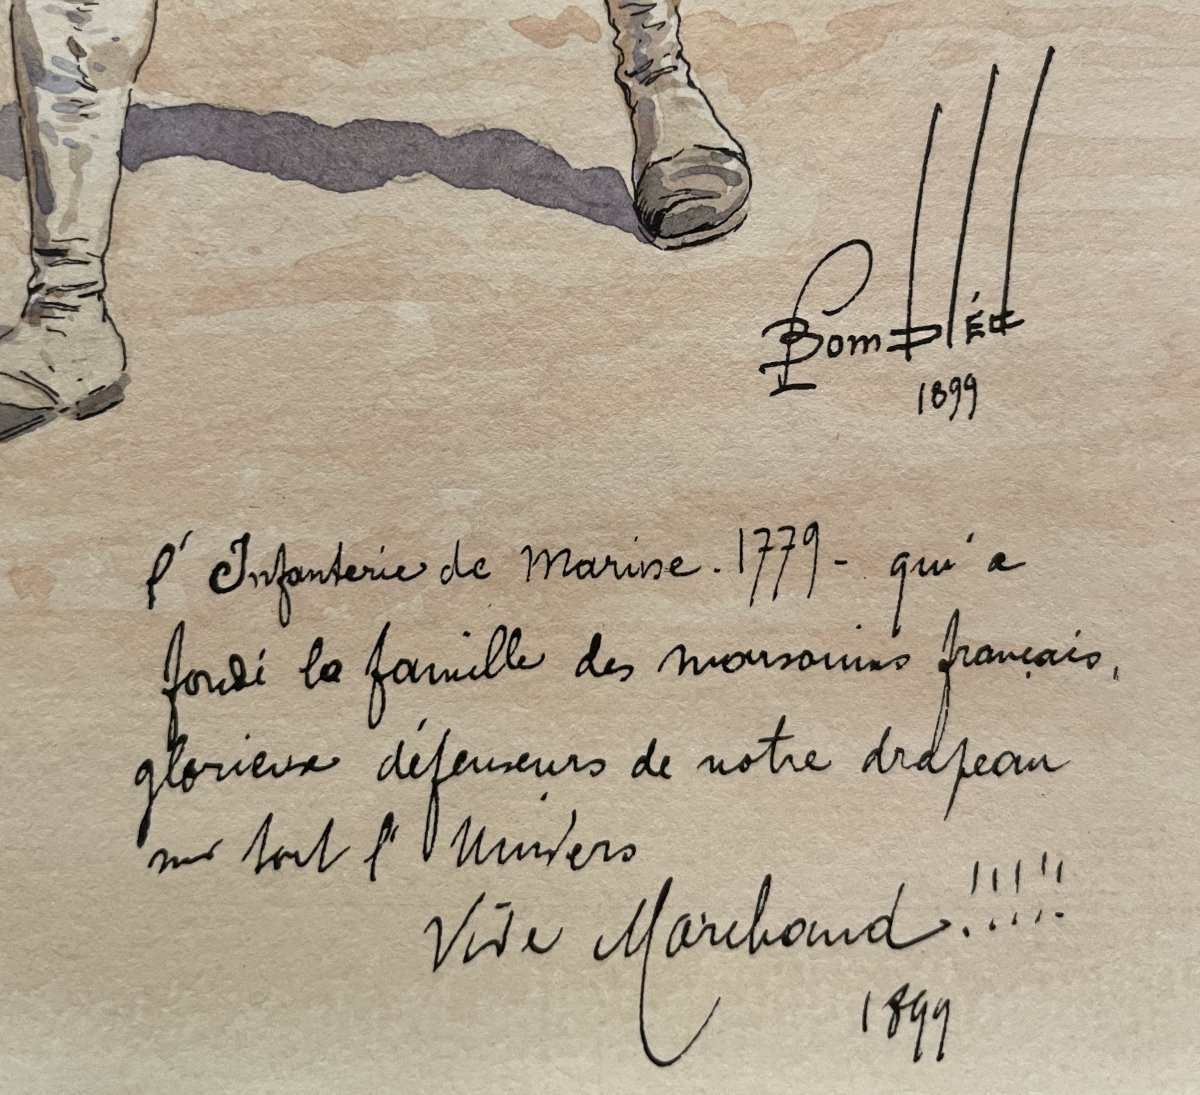 Bombléd
1899
l'Infanterie de Marine. 1779 - qui a
fondé la famille des marsouins français,
glorieux défenseurs de notre drapeau
sur tout l'Univers
Vive Marchand !!!!!
1899